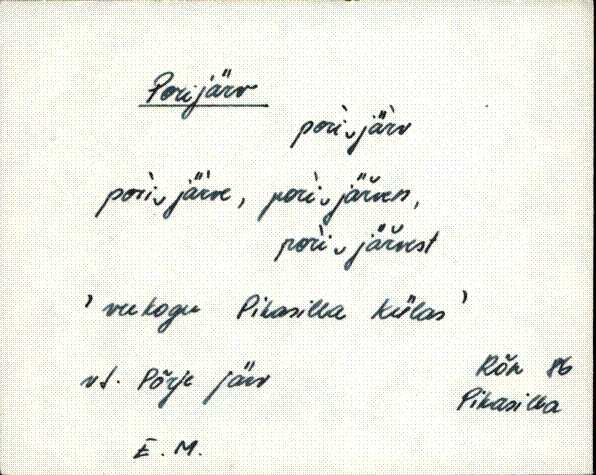 Porijärv
porì‿jä̀rv
porì‿järve, porì‿järven,
porì‿järvest
' veekogu Pikasilla külas '
vt. Põrje järv
Rõn 86
Pikasilla
E. M.